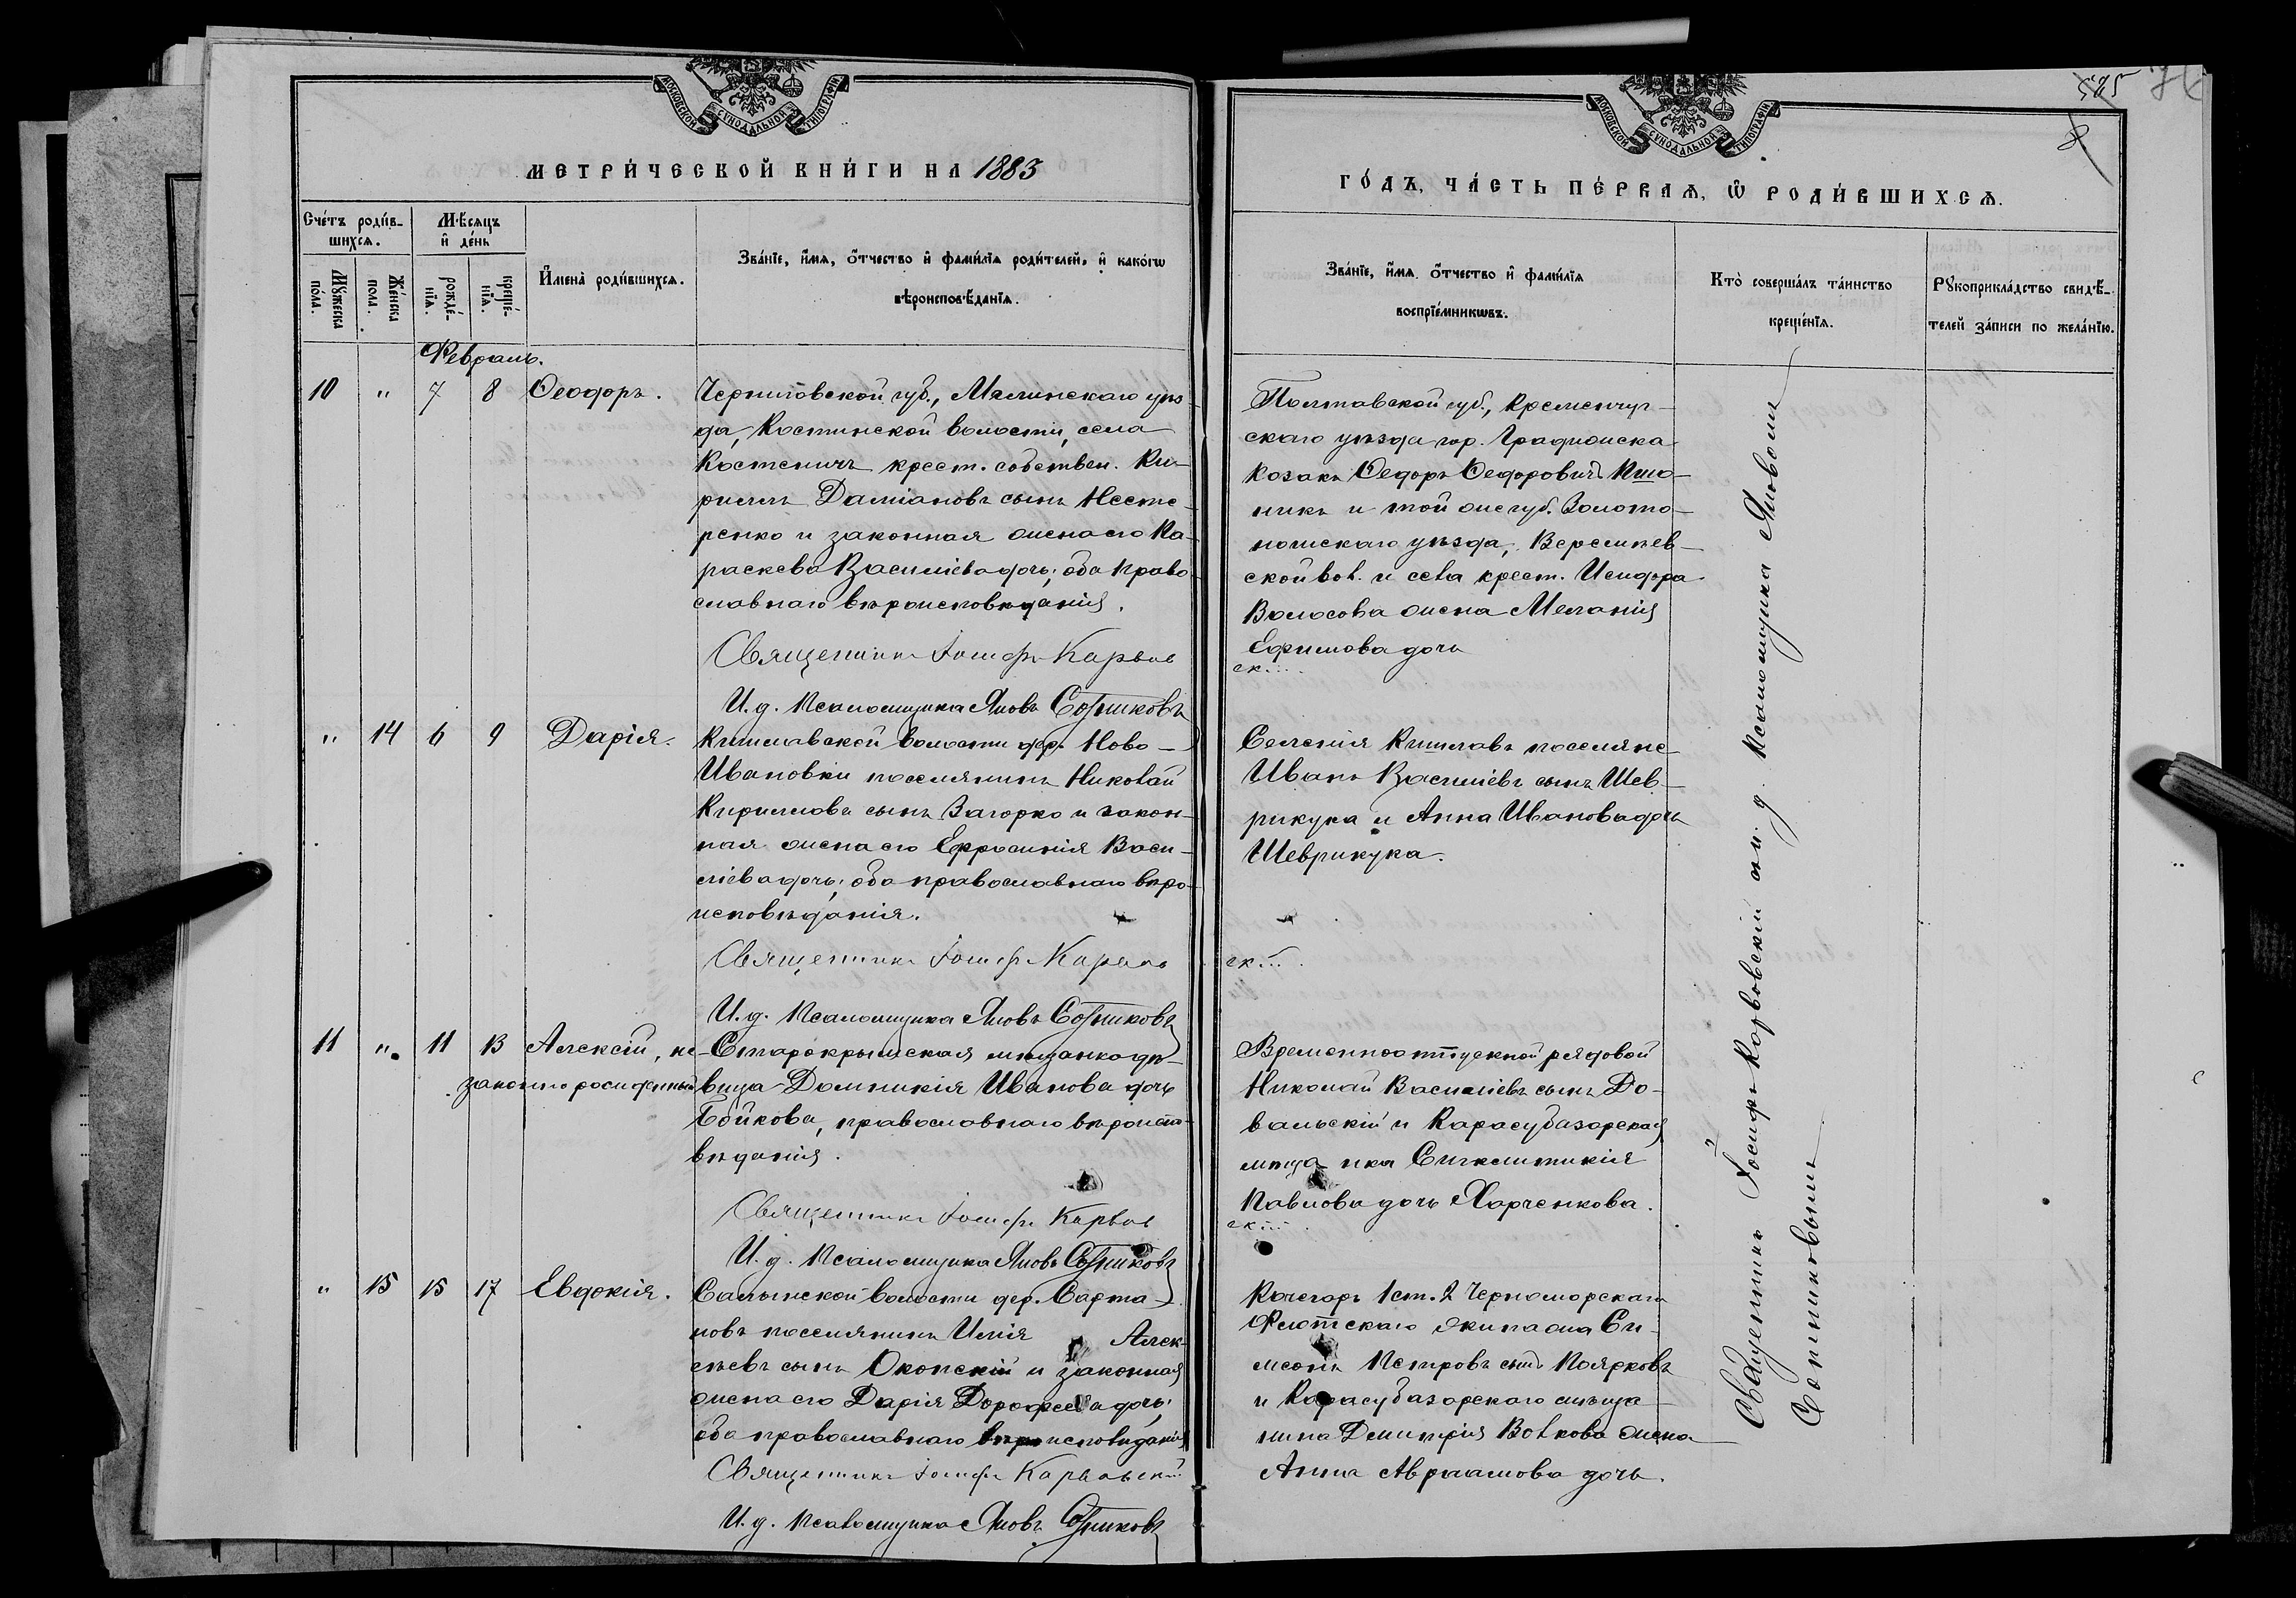 МОСКОВСКОЙ СѴНОДАЛЬНОЙ ТИПОГРАФІИ
МЕТРИ́ЧЕСКОЙ КНИ́ГИ НА 1883
Сче́тъ роди́в-
шихсѧ.
Мѣ́сѧцъ
и҆ де́нь
Мꙋ́жеска
по́ла.
Же́нска
по́ла.
рожде́-
нїѧ.
креще́-
нїѧ.
И҆мена̀ роди́вшихсѧ.
Зва́нїе, и҆́мѧ, ѻ҆́тчество и҆ фамѝлїѧ роди́телей, и҆ како́гѡ
вѣроисповѣ́данїѧ.
Февраль.
10 " 7 8 Ѳеодоръ.
Черниговской губ., Мглинскаго уѣз-
да, Костинской волости, села
Костеничъ крест. собствен. Ки-
риллъ Даміановъ сынъ Несте-
ренко и законная жена его Па-
раскева Василіева дочь; оба право-
славнаго вѣроисповѣданія.
Священникъ Іосифъ Карвов
И. д. Псаломщика Яковъ Сотниковъ
" 14 6 9 Дарія.
Кишлавской волости дер. Ново-
Ивановки поселянинъ Николай
Кирилловъ сынъ Загорко и закон-
ная жена его Ефросинія Васи-
ліева дочь; оба православнаго вѣро-
исповѣданія.
Священникъ Іосифъ Карвов
И. д. Псаломщика Яковъ Сотниковъ
11 " 11 13 Алексій, не-
законнорожденный
Старокрымская мѣщанка дѣ-
вица Домникія Иванова дочь
Бойкова, православнаго вѣроиспо-
вѣданія.
Священникъ Іосифъ Карвов
И. д. Псаломщика Яковъ Сотниковъ
" 15 15 17 Евдокія.
Салынской волости дер. Сарта-
новъ поселянинъ Илія Алек-
сѣевъ сынъ Оконскій и законная
жена его Дарія Дорофеева дочь;
оба православнаго вѣроисповѣданія
Священникъ Іосифъ Карвовскій
И. д. Псаломщика Яковъ Сотниковъ
МОСКОВСКОЙ СѴНОДАЛЬНОЙ ТИПОГРАФІИ
ГО́ДЪ, ЧА́СТЬ ПЕ́РВАѦ, Ѡ҆ РОДИ́ВШИХСѦ.
Зва́нїе, и҆́мѧ, ѻ҆́тчество и҆ фамѝлїѧ
воспрїе́мникѡвъ.
Кто̀ соверша́лъ та́инство
креще́нїѧ.
Рꙋкоприкла́дство свидѣ́-
телей за́писи по жела́нїю.
Полтавской губ., Кременчуг-
скаго уѣзда гор. Градижска
козакъ Ѳедоръ Ѳедоровичъ Пшо-
никъ и той же губ. Золото-
ношскаго уѣзда, Веремѣев-
ской вол. и села крест. Исидора
Волосова жена Меланія
Ефимова дочь
ск...
Селенія Кишлавъ поселяне
Иванъ Василіевъ сынъ Шев-
рикука и Анна Иванова дочь
Шеврикука.
ск...
Временноотпускной рядовой
Николай Василіевъ сынъ До-
вальскій и Карасубазарская
мѣщанка Синклитикія
Павлова дочь Харченкова.
ск...
Кочегаръ 1 ст. 2 Черноморскаго
Флотскаго экипажа Си-
меонъ Петровъ сынъ Поярковъ
и Карасубазарскаго мѣща-
нина Димитрія Волкова жена
Анна Авраамова дочь.
Священникъ Іосифъ Карвовскій съ и. д. Псаломщика Яковомъ
Сотниковымъ